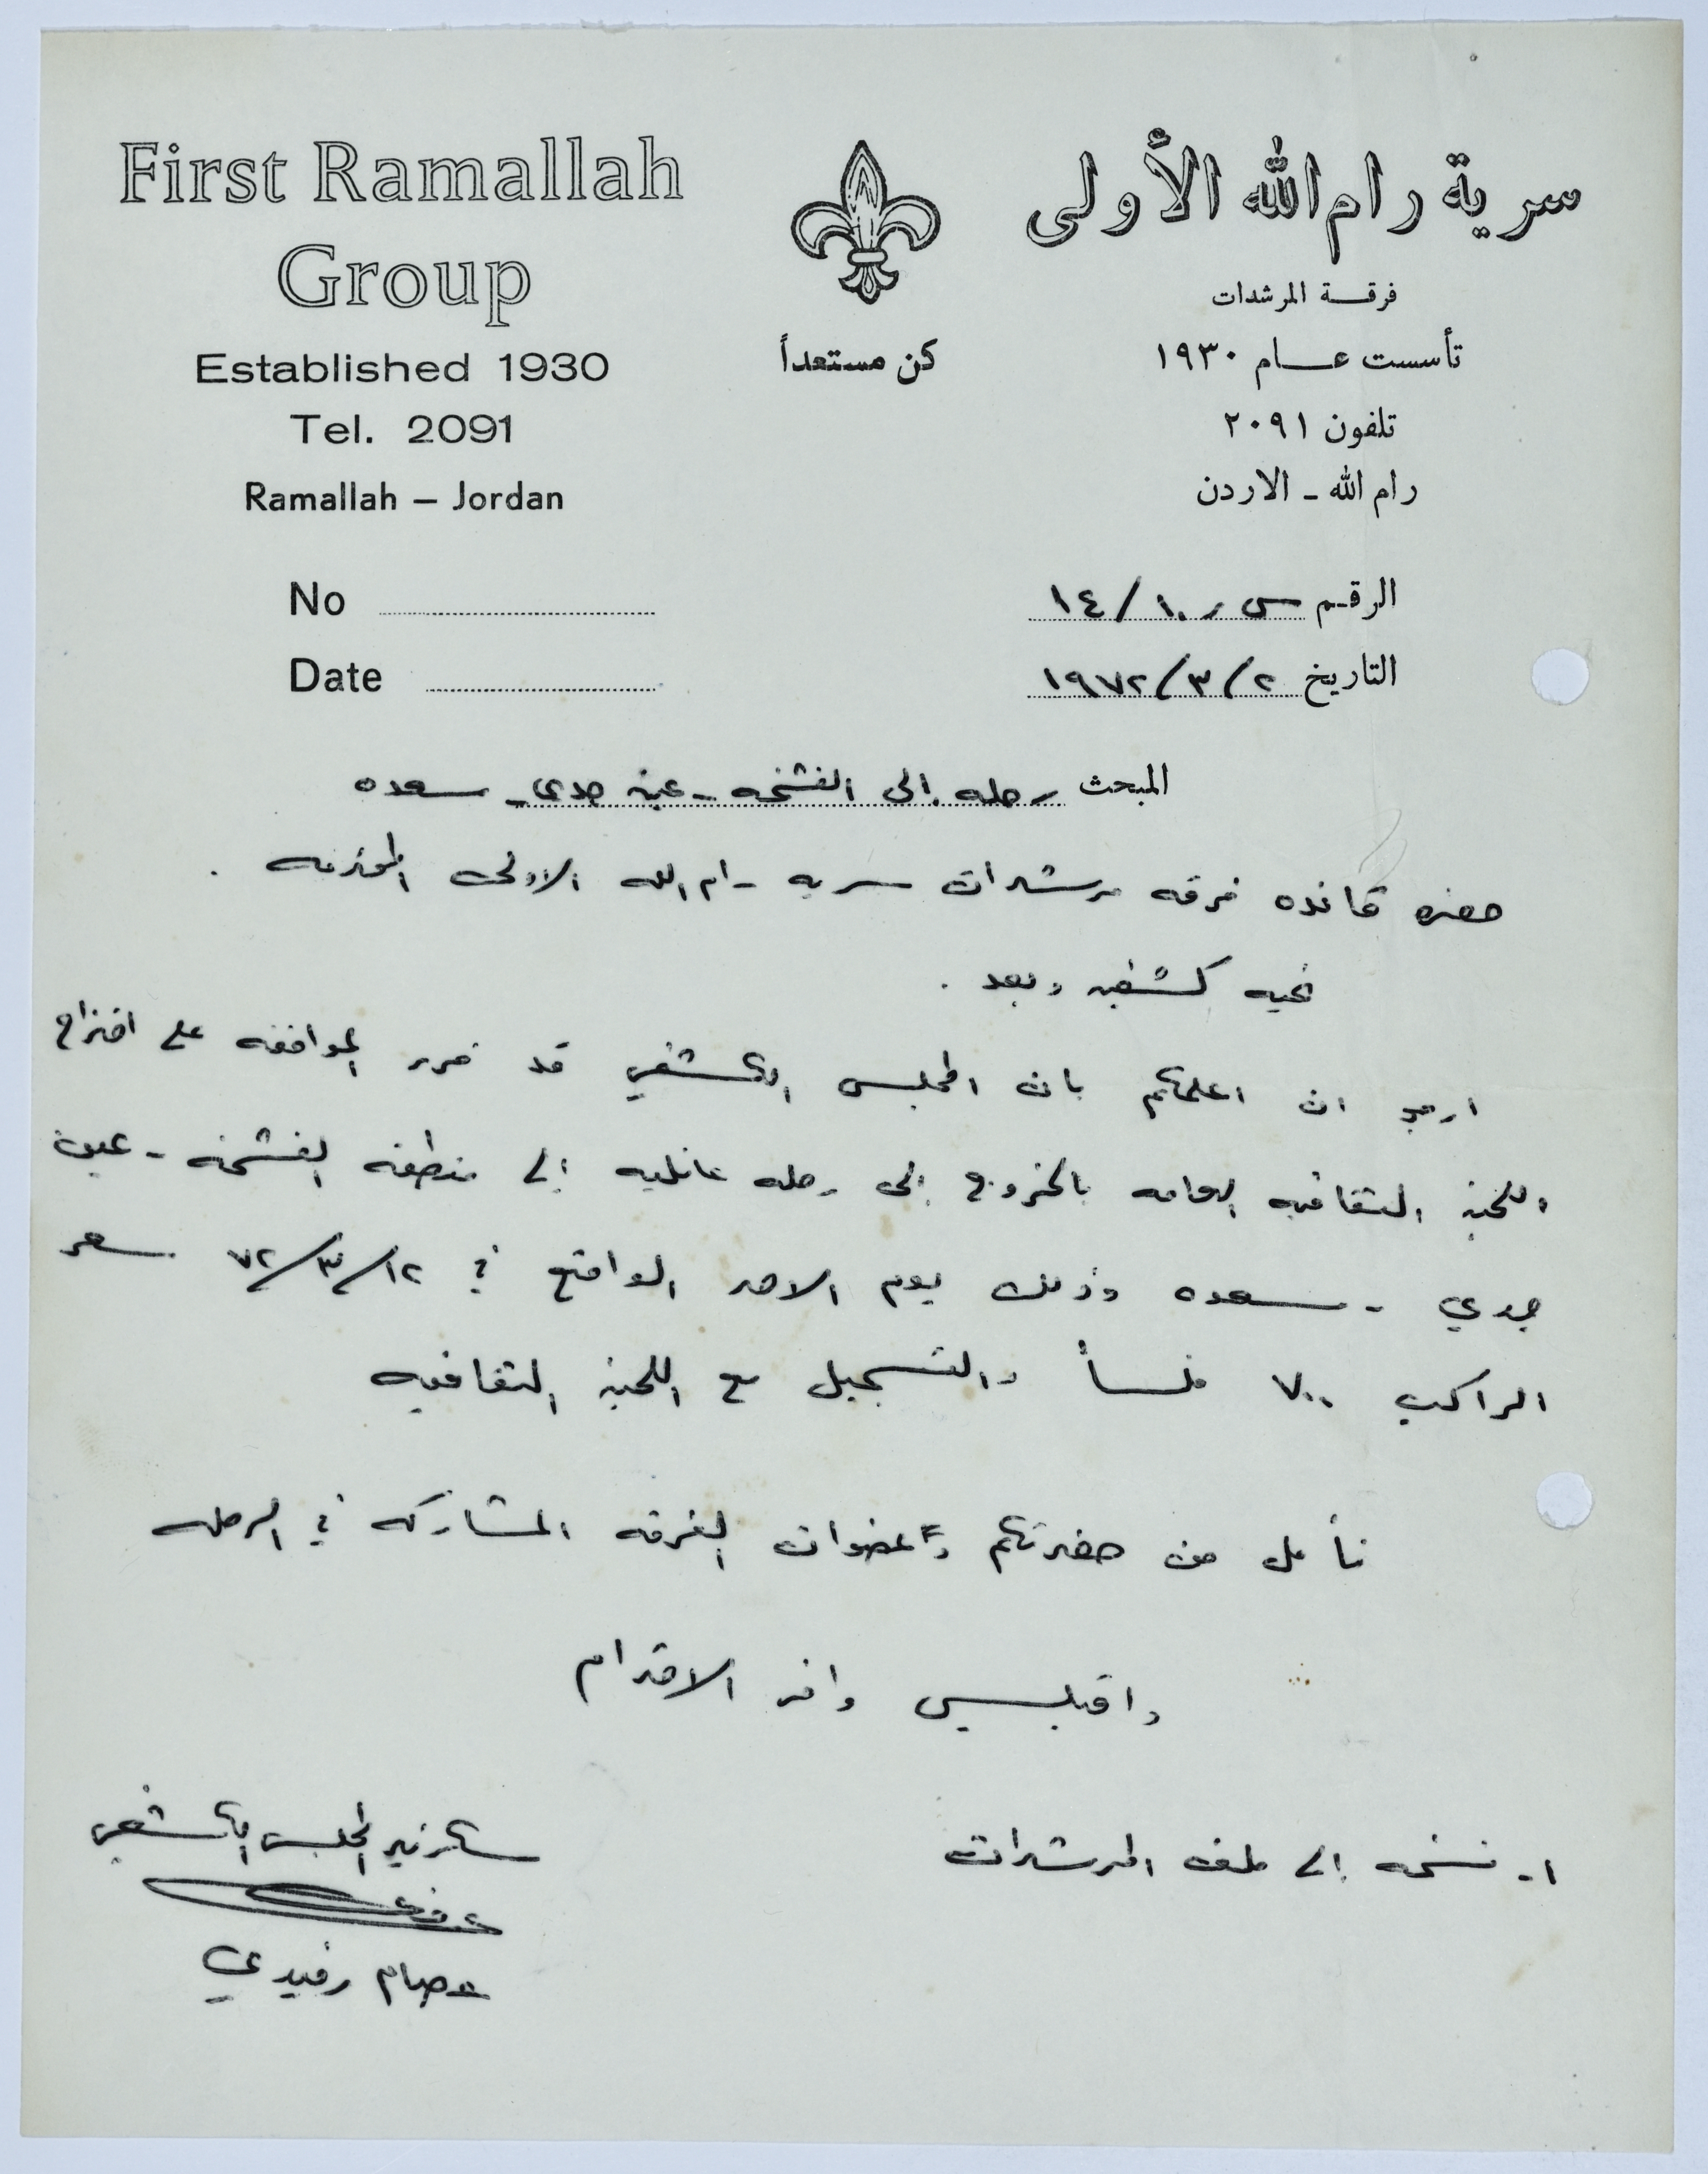 First Ramallah
Group
Established 1930
Tel. 2091
Ramallah – Jordan
No
Date
كن مستعداً
سرية رام الله الأولى
فرقة المرشدات
تأسست عام ١٩٣٠
تلفون ٢٠٩١
رام الله - الاردن
الرقم س ر ١٠/١٤
التاريخ ٢/٣/١٩٧٢
المبحث رحله إلى الفشخه - عين جدي - سعده
حضرة قائده فرقه مرشدات سريه رام الله الاولى المحترمه .
تحيه كشفيه وبعد .
ارجو ان اعلمكم بان المجلس الكشفي قد قرر الموافقه على اقتراح
اللجنه الثقافيه العامه بالخروج إلى رحله عائليه إلى منطقه الفشخه - عين
جدي - سعده وذلك يوم الاحد الواقع في ١٢/٣/٧٢ سعر
الراكب ٧٠٠ فلساً والتسجيل مع اللجنه الثقافيه
نأمل من حضرتكم وعضوات الفرقه المشاركه في الرحله
واقبلـي وافر الاحترام
١- نسخه إلى ملف المرشدات
سكرتير المجلس الكشفي
عصام رفيدي